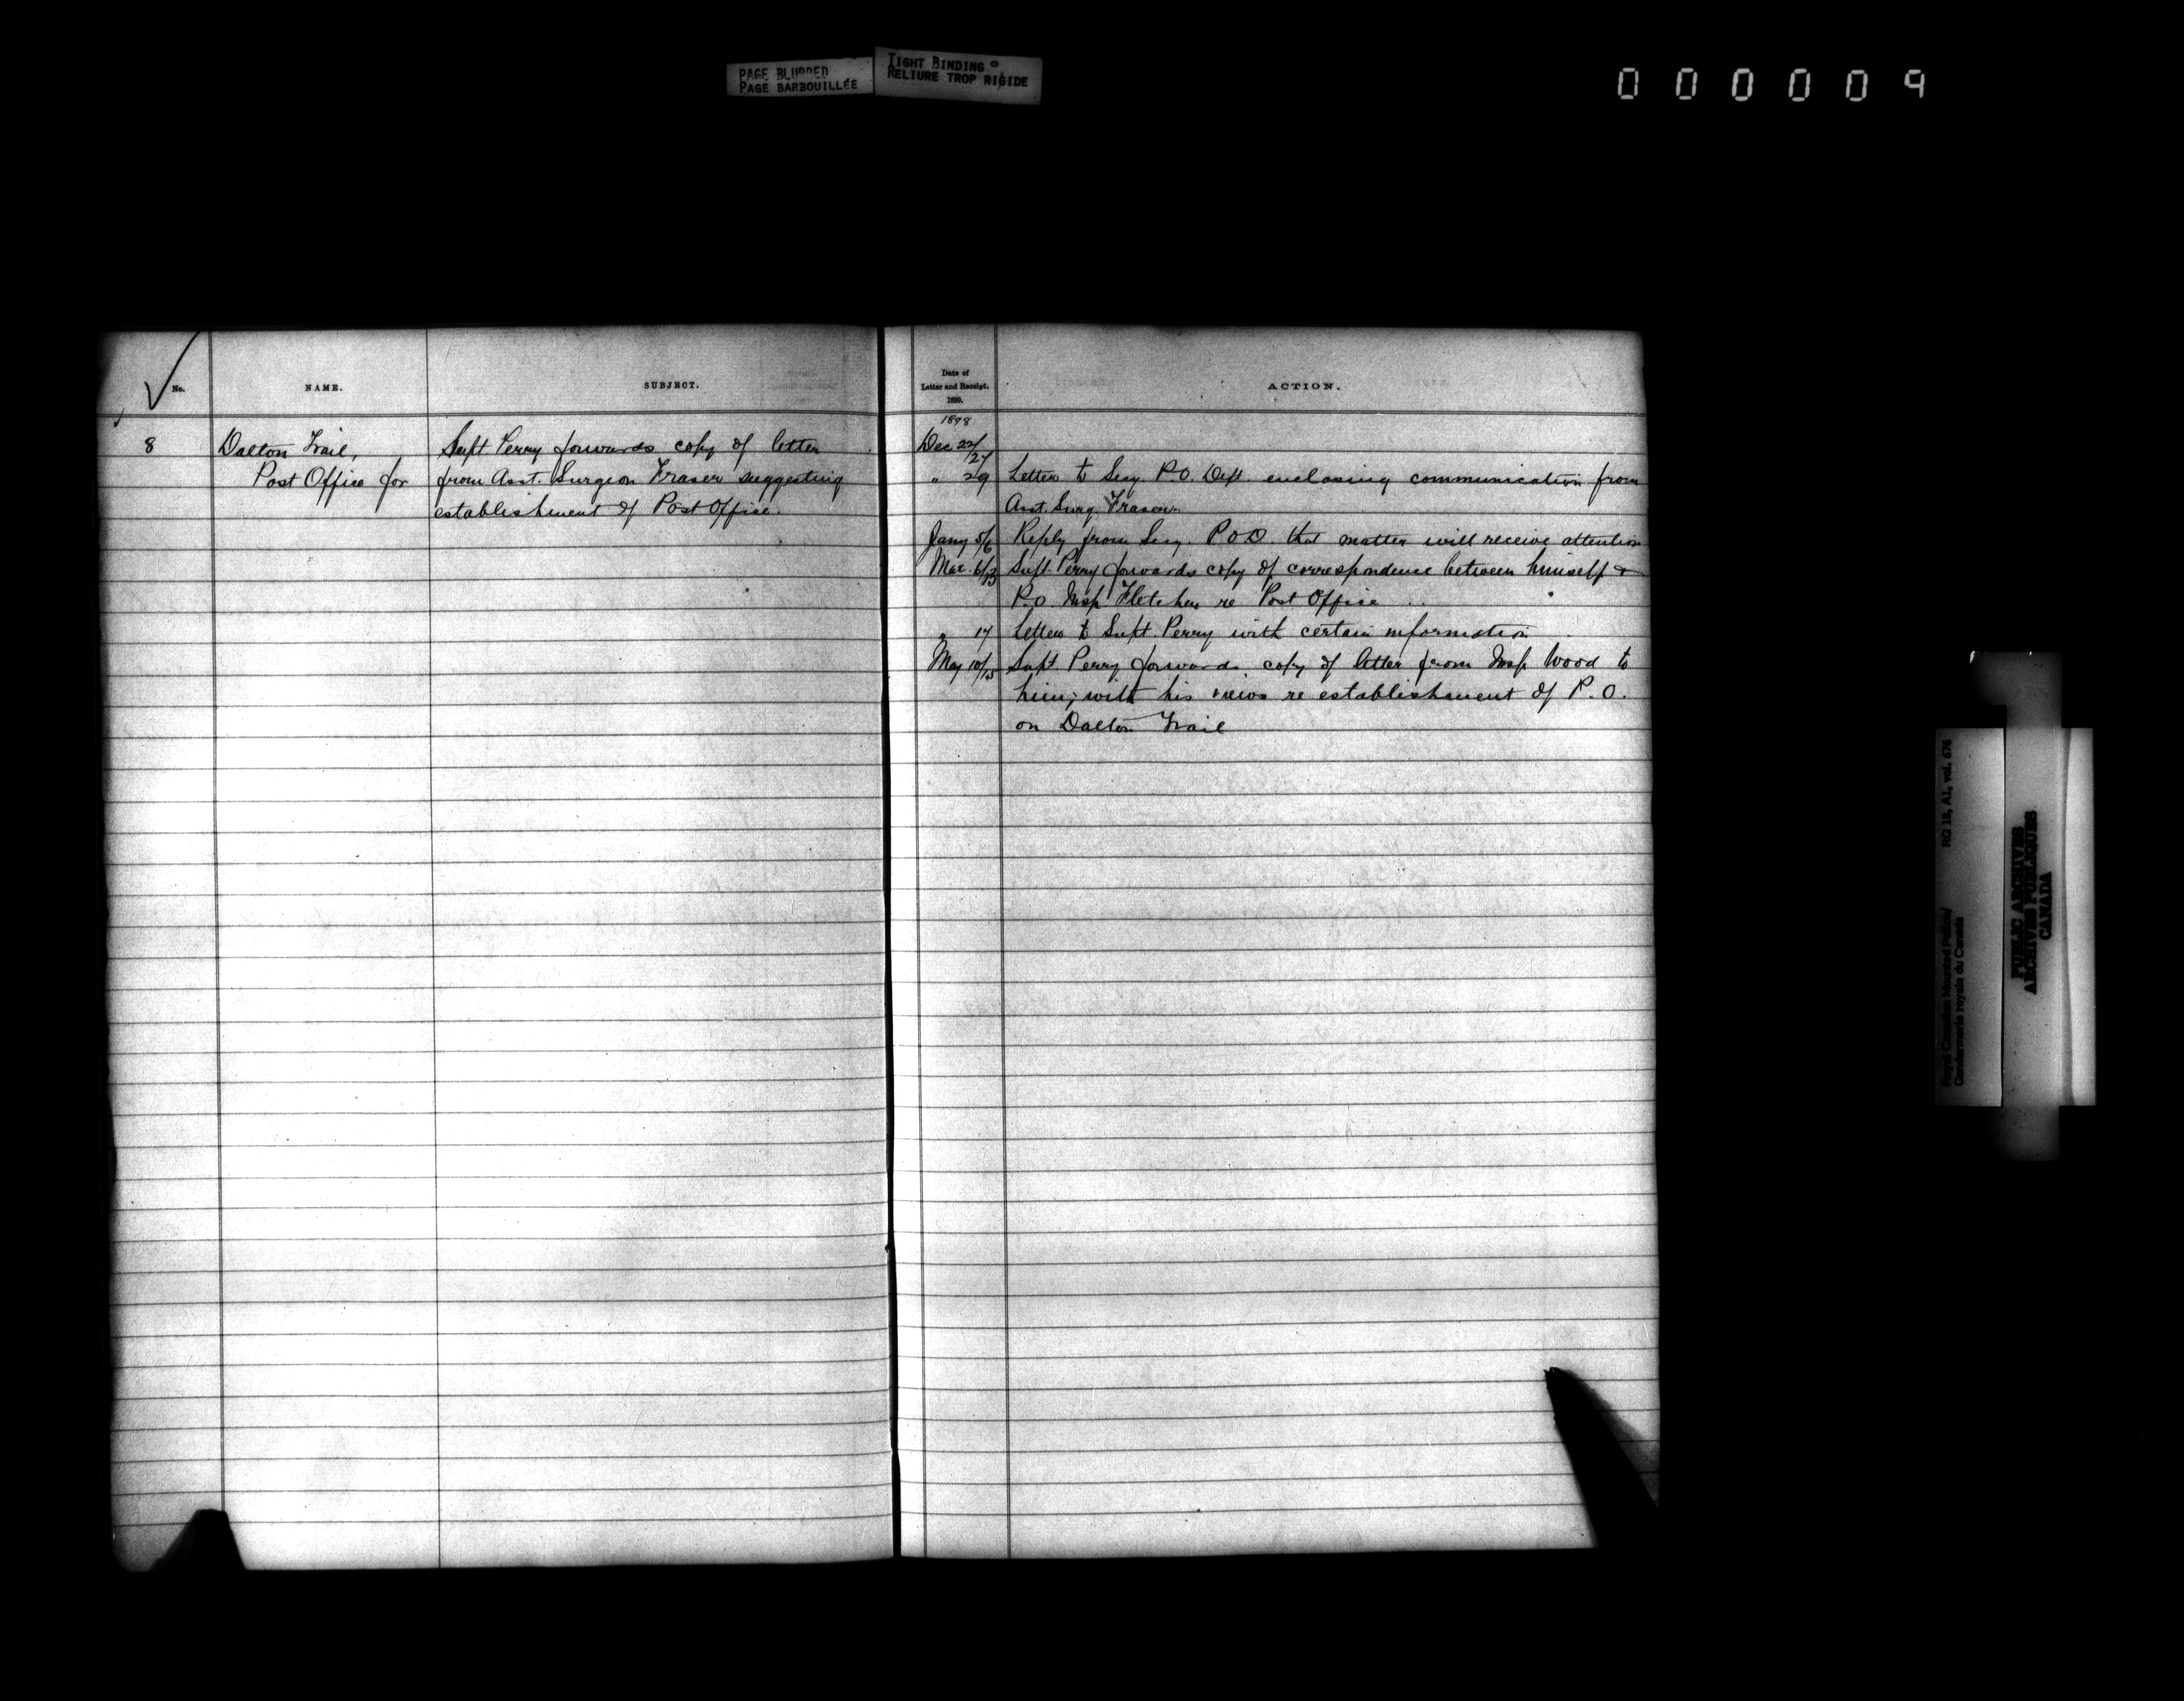 PAGE BLURRED
PAGE BARBOUILLÉE
TIGHT BINDING
RELIURE TROP RIGIDE
000009
No.
NAME.
SUBJECT.
Date of
Letter and Receipt.
1899.
ACTION.
8
Dalton Trail,
Post Office for
Supt Perry forwards copy of letter
from Asst. Surgeon Fraser suggesting
establishment of Post Office.
1898
Dec 22/27
" 29 Letter to Secy. P.O. Dept. enclosing communication from
Asst. Surg. Fraser.
Jany 5/6 Reply from Secy. P O D. that matter will receive attention
Mar. 6/13 Supt. Perry forwards copy of correspondence between himself &
P.O. Insp Fletcher re Post Office
" 17 Letter to Supt. Perry with certain information
May 10/15 Supt. Perry forwards copy of letter from Insp Wood to
him; with his views re establishment of P.O.
on Dalton Trail
RG 18, A1, vol. 676
Royal Canadian Mounted Police/
Gendarmerie royale du Canada
PUBLIC ARCHIVES
ARCHIVES PUBLIQUES
CANADA